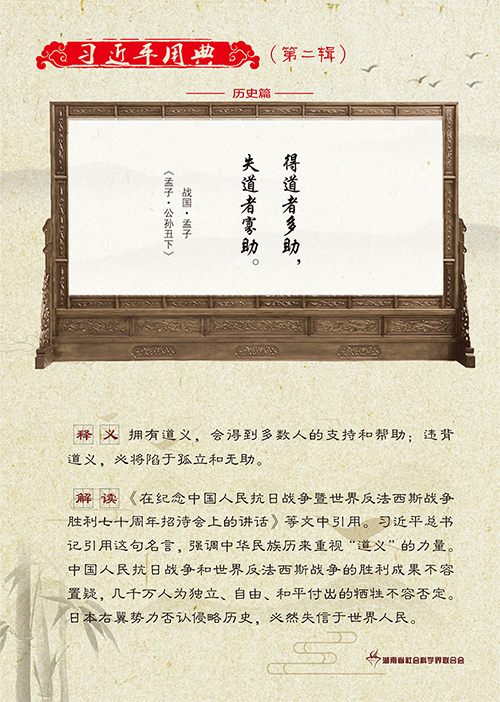 习近平用典（第二辑）
历史篇
得道者多助，
失道者寡助。
战国·孟子
《孟子·公孙丑下》
释义 拥有道义，会得到多数人的支持和帮助；违背
道义，必将陷于孤立和无助。
解读《在纪念中国人民抗日战争暨世界反法西斯战争
胜利七十周年招待会上的讲话》等文中引用。习近平总书
记引用这句名言，强调中华民族历来重视“道义”的力量。
中国人民抗日战争和世界反法西斯战争的胜利成果不容
置疑，几千万人为独立、自由、和平付出的牺牲不容否定。
日本右翼势力否认侵略历史，必然失信于世界人民。
湖南省社会科学界联合会